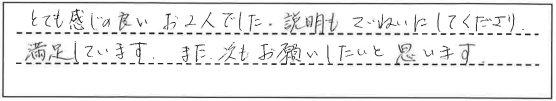 とても感じの良いお2人でした。説明もていねいにしてくださり、
満足しています。また、次もお願いしたいと思います。